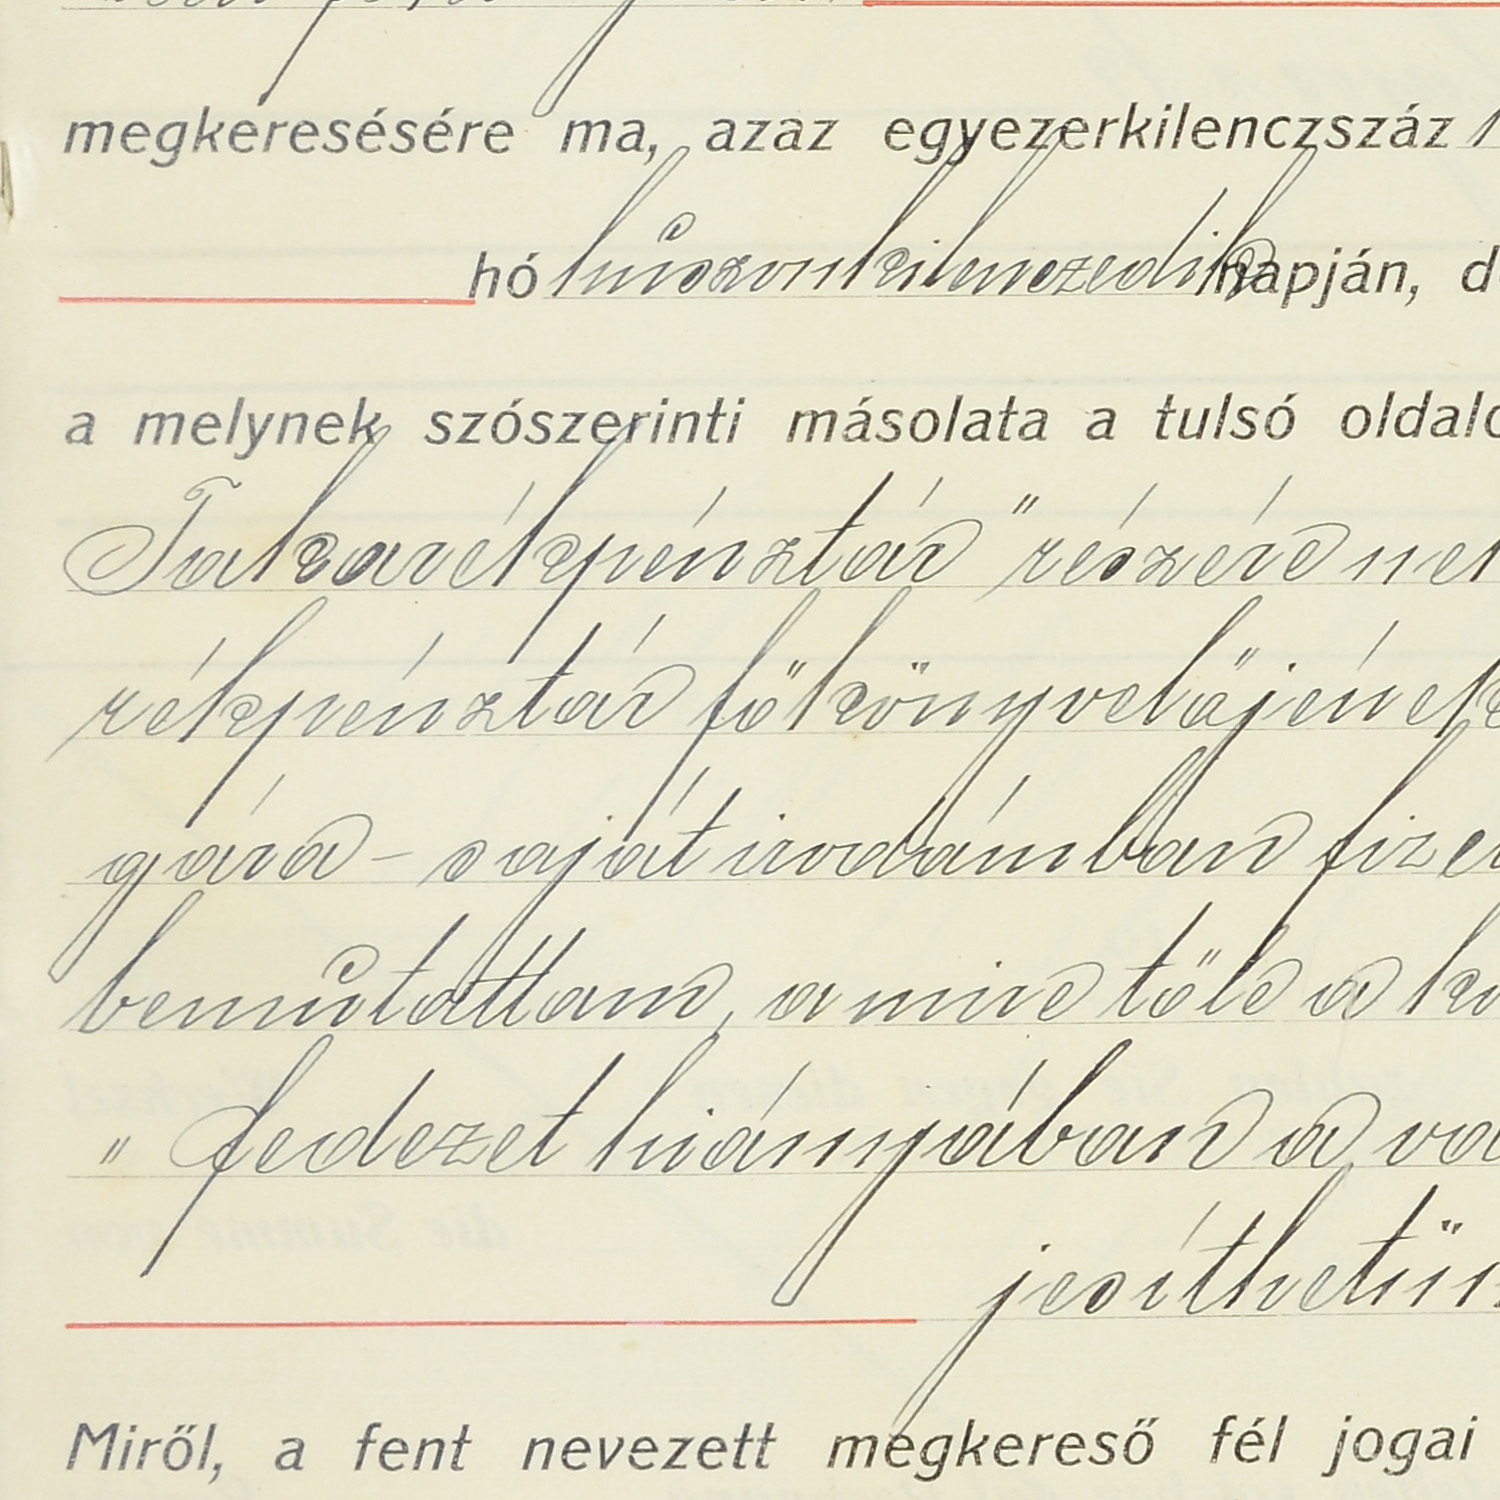 megkeresésére ma, azaz egyezerkilenczszáz
hó húszonkilenczedik napján,
a melynek szószerinti másolata a tulsó
Takarékpénztár" részére
rékpénztár főkönyvelőjének
gára - saját irodámban
bemútattam, a mire tőle a
" fedezet hiányában a
jesíthetü
Miről, a fent nevezett megkereső fél jogai